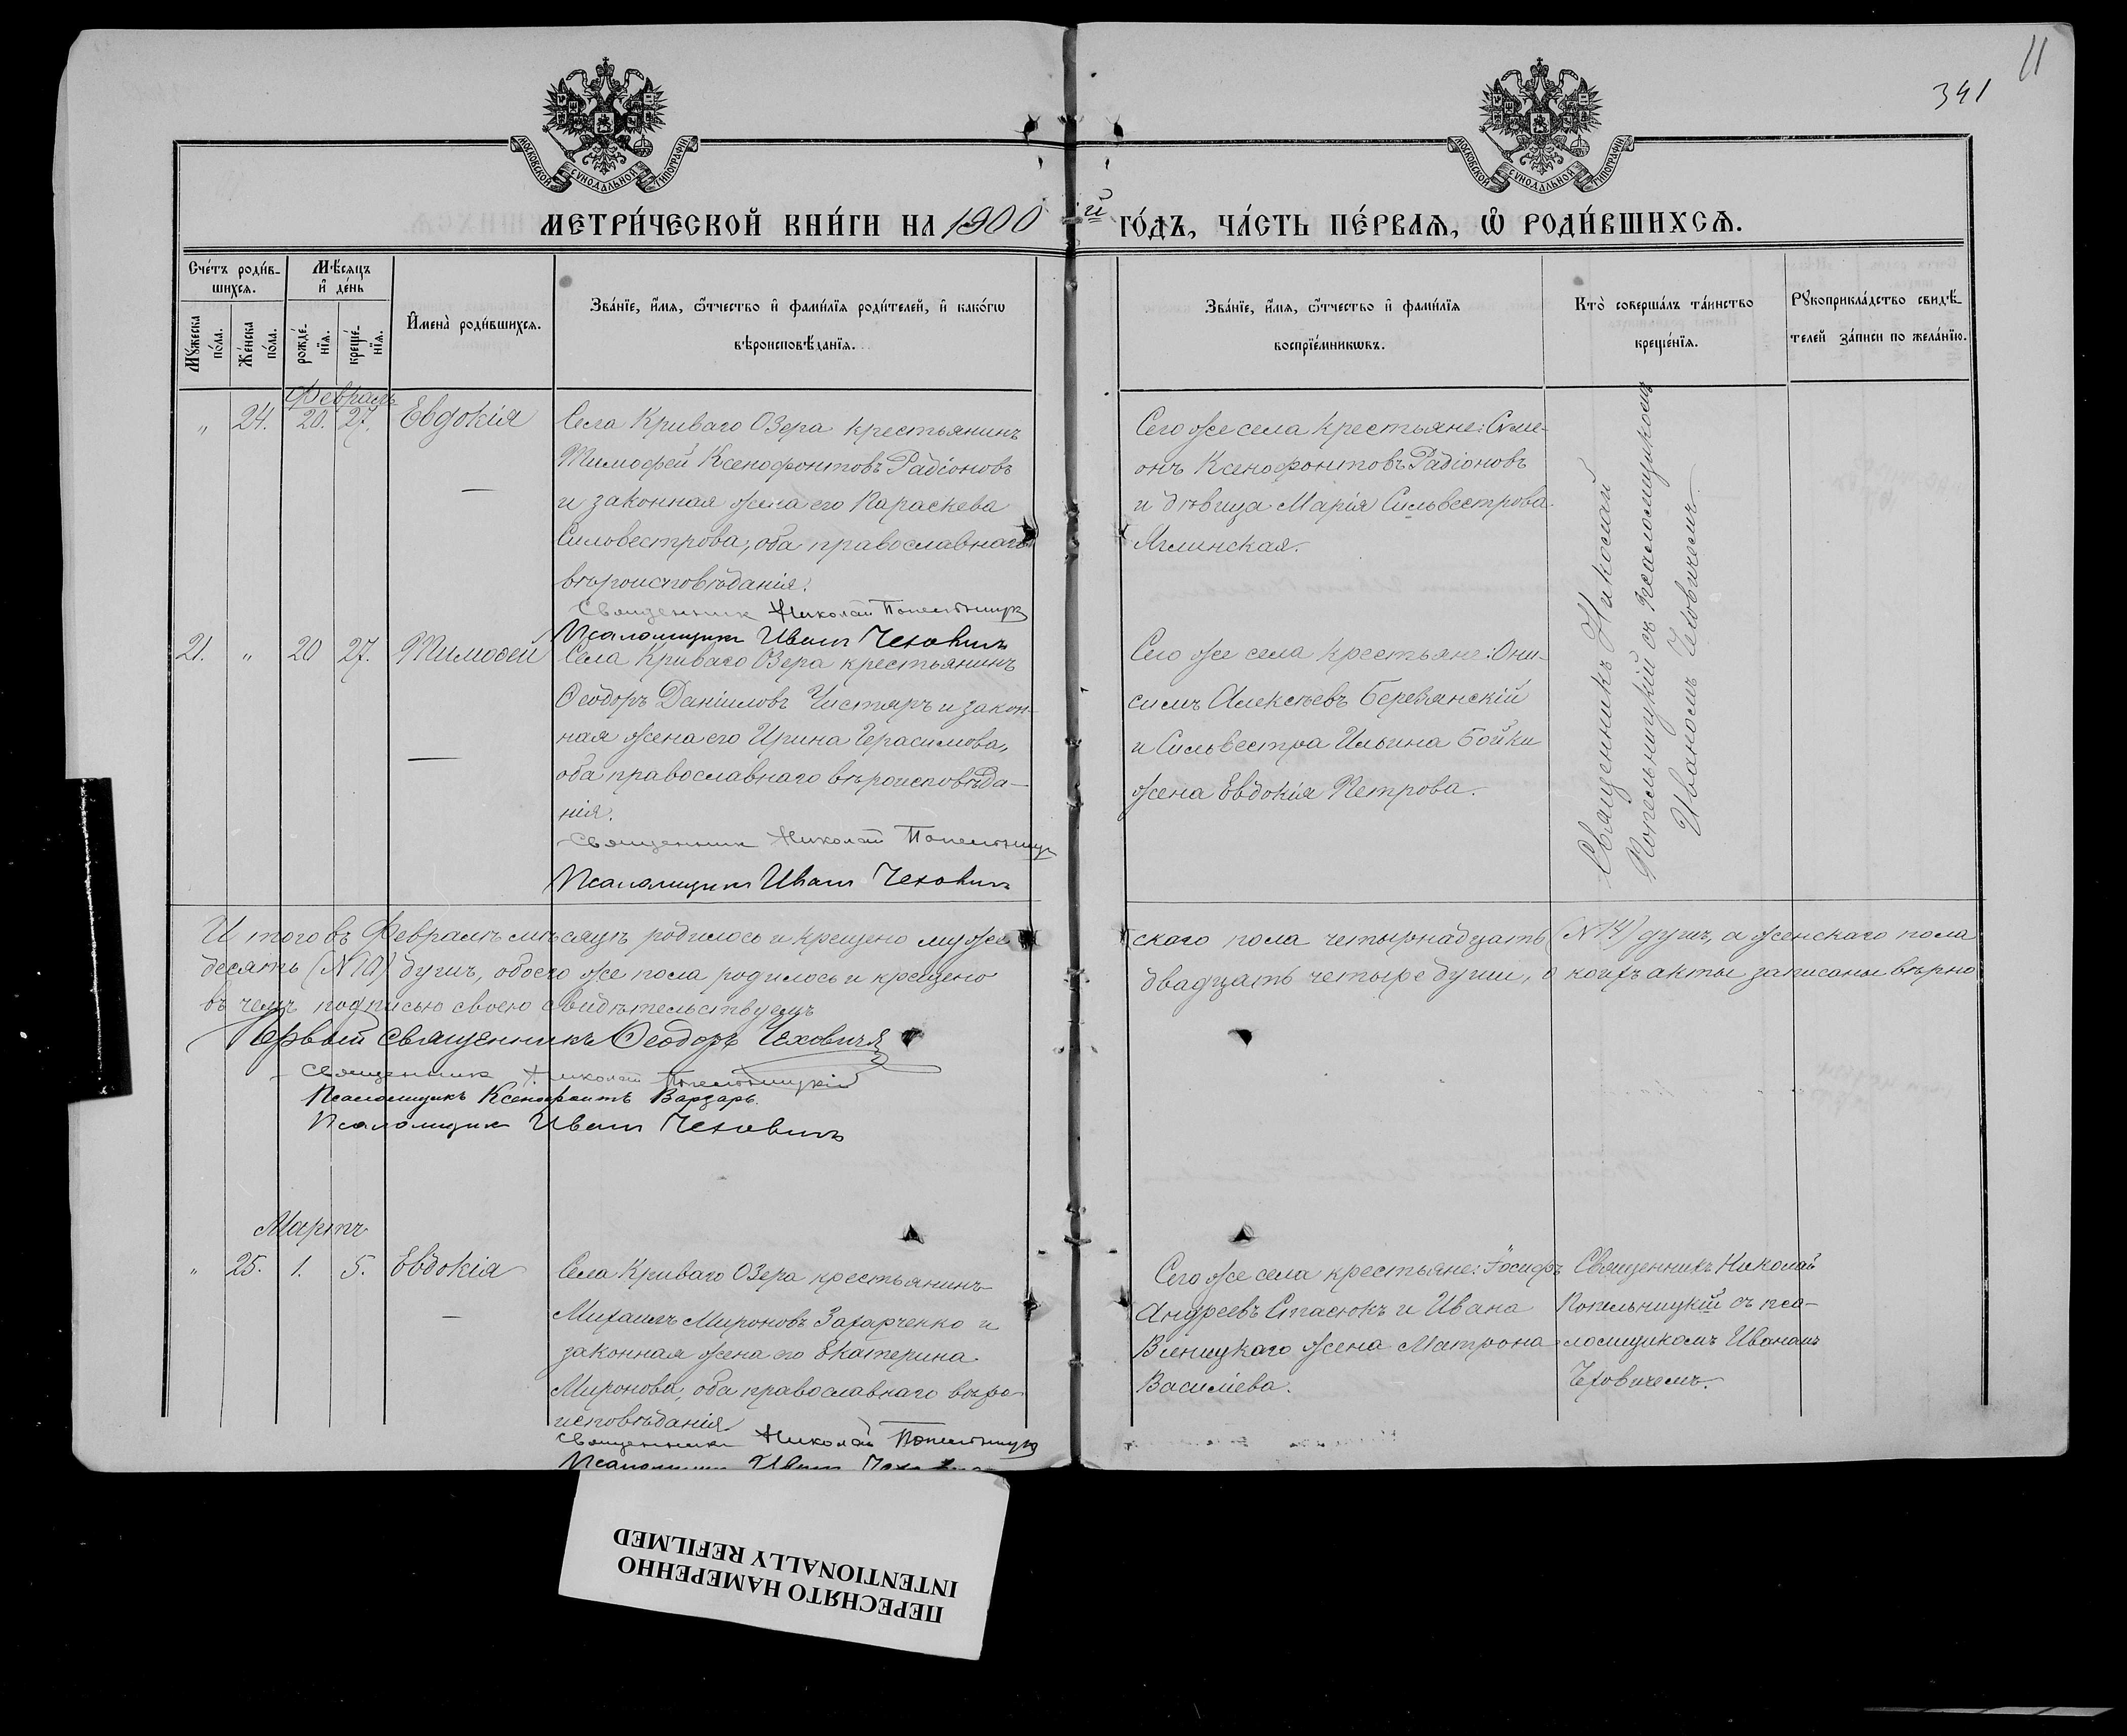 11
341
МОСКОВСКОЙ СѴНОДАЛЬНОЙ ТИПОГРАФІИ
МОСКОВСКОЙ СѴНОДАЛЬНОЙ ТИПОГРАФІИ
МЕТРИ́ЧЕСКОЙ КНИ́ГИ НА 1900
й ГО́ДЪ, ЧА́СТЬ ПЕ́РВАѦ, Ѡ҆ РОДИ́ВШИХСѦ.
Сче́тъ роди́в-
шихсѧ.
Мꙋ́жеска
по́ла.
Же́нска
по́ла.
Мѣ́сѧцъ
и҆ де́нь
рожде́-
нїѧ.
креще́-
нїѧ.
И҆мена̀ роди́вшихсѧ.
Зва́нїе, и҆́мѧ, ѻ҆́тчество и҆ фами́лїѧ роди́телей, и҆ како́гѡ
вѣроисповѣ́данїѧ.
Зва́нїе, и҆́мѧ, ѻ҆́тчество и҆ фами́лїѧ
воспрїе́мникѡвъ.
Кто̀ соверша́лъ та́инство
креще́нїѧ.
Рꙋкоприкла́дство свидѣ́-
телей за́писи по жела́нїю.
Февраль
" 24. 20. 27. Евдокія
Села Криваго Озера крестьянинъ
Тимофей Ксенофонтовъ Радіоновъ
и законная жена его Параскева
Сильвестрова, оба православнаго
вѣроисповѣданія.
Священник Николай Попельницк
Псаломщик Иван Чеховичъ
Сего же села крестьяне: Симе-
онъ Ксенофонтовъ Радіоновъ
и дѣвица Марія Сильвестрова
Ямминская.
Священникъ Николай
Попельницкій съ псаломщикомъ
Иваномъ Чеховичемъ.
21. " 20 27. Тимоѳей
Села Криваго Озера крестьянинъ
Ѳеодоръ Даніиловъ Чистяръ и закон-
ная жена его Ирина Герасимова,
оба православнаго вѣроисповѣда-
нія.
Священник Николай Попельницк
Псаломщик Иван Чеховичъ
Сего же села крестьяне: Они-
симъ Алексѣевъ Березянскій
и Сильвестра Ильина Бойки
жена Евдокія Петрова.
И того въ Февралѣ мѣсяцѣ родилось и крещено муже
скаго пола четырнадцать (N 14) душъ, а женскаго пола
десять (N 10) душъ, обоего же пола родилось и крещено
двадцать четыре души, о коихъ акты записаны вѣрно
въ чемъ подписью своею свидѣтельствуемъ
Первый священникъ Ѳеодоръ Чеховичъ
Священник Николай Попельницкій
Псаломщикъ Ксенофонтъ Варзарь.
Псаломщик Иван Чеховичъ
Мартъ
" 25. 1. 5. Евдокія
Села Криваго Озера крестьянинъ
Михаилъ Мироновъ Захарченко и
законная жена его Екатерина
Миронова, оба православнаго вѣро-
исповѣданія.
Священник Николай Попельницк
Псаломщик Иван Чеховичъ
Сего же села крестьяне: Іосифъ
Андреевъ Стасюкъ и Ивана
Виницкаго жена Матрона
Василіева.
Священникъ Николай
Попельницкій съ пса-
ломщикомъ Иваномъ
Чеховичемъ.
ПЕРЕСНЯТО НАМЕРЕННО
INTENTIONALLY REFILMED